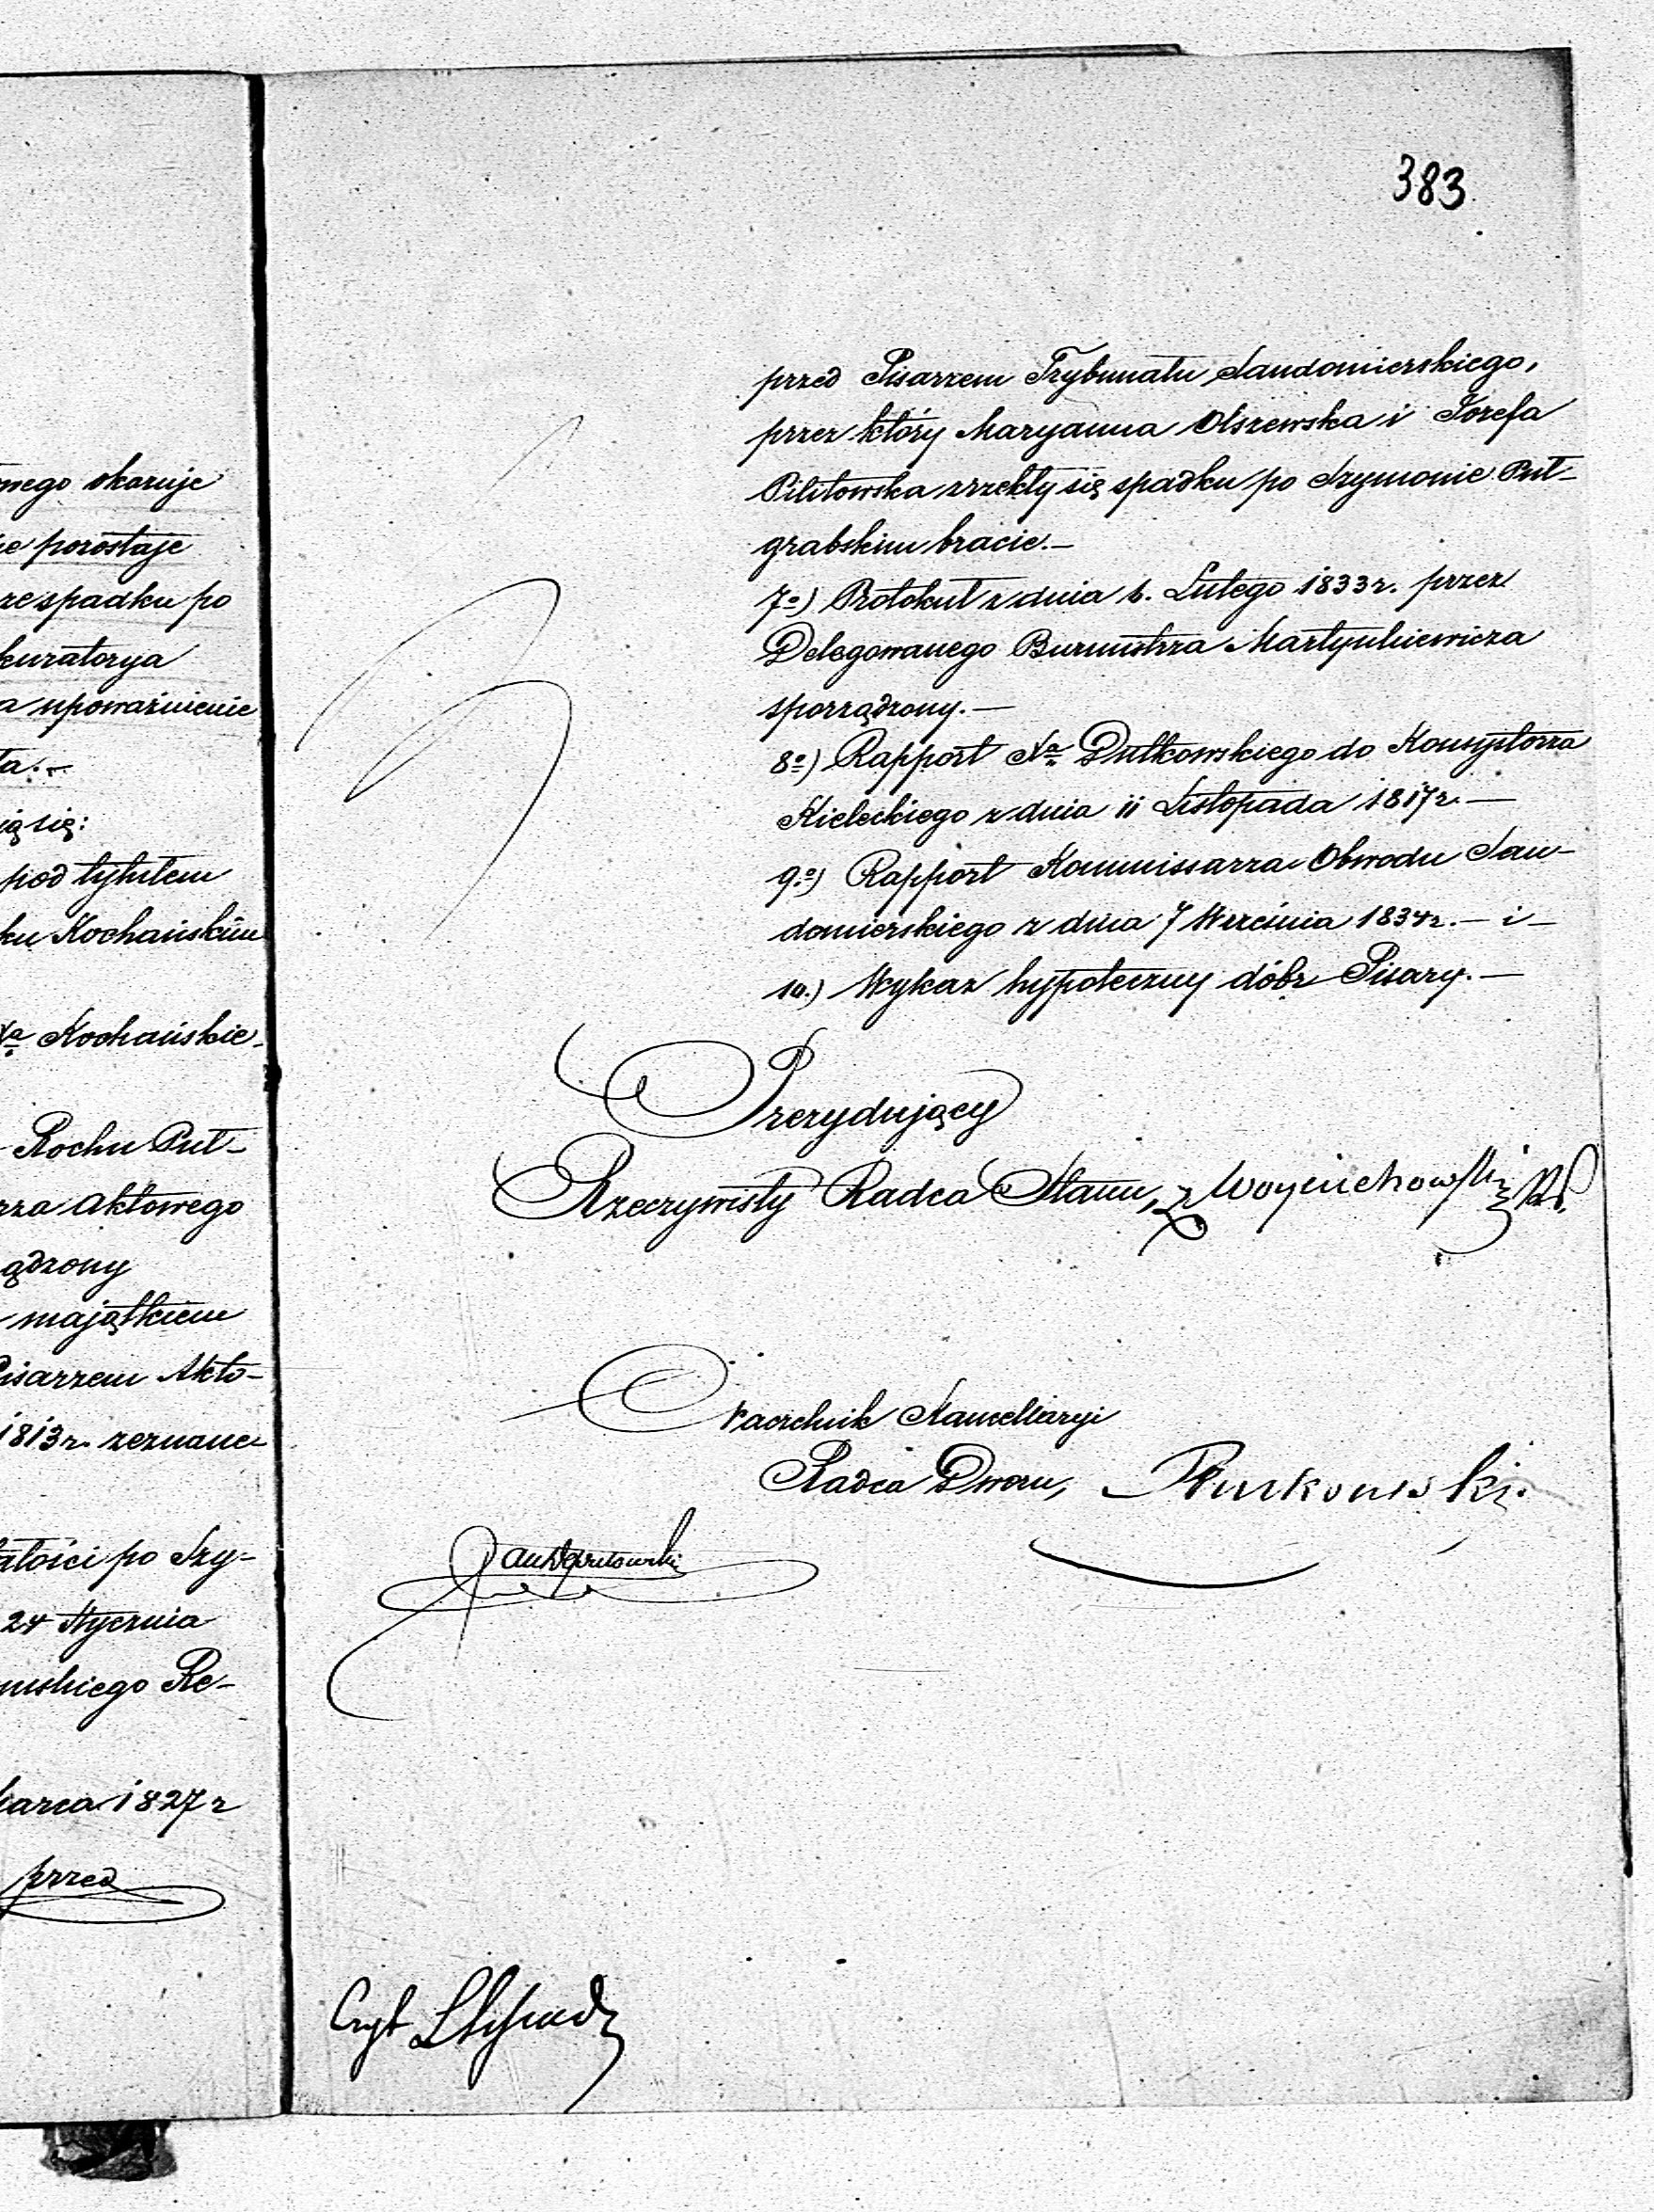 nego okazuje
porostaje
ze spadku po
kuratorya
a upoważnienie
ta.—
ią się:
pod tytułem
ku Kochańskim
Xa Kochańskie-
Rochu Put-
rza aktowego
ądzony
majątkiem
Pisarzem Akto-
1813 r. zeznane
ałości po Szy-
24 Stycznia
mskiego Re-
Marca 1827 r
przed
383.
przed Pisarzem Trybunału Sandomierskiego,
przez który Maryanna Olszewska i Józefa
Pilitowska zrzekły się spadku po Szymonie Put-
grabskim bracie.—
7o) Protokuł z dnia 6. Lutego 1833 r. przez
Delegowanego Burmistrza Martynkiewicza
sporządzony.—
8o) Rapport Xa Dutkowskiego do Konsystorza
Kieleckiego z dnia 11 Listopada 1817 r.—
9o) Rapport Kommissarza Obwodu San-
domierskiego z dnia 7 Września 1834 r.— i —
10.) Wykaz hypoteczny dóbr Pisary.—
Prezydujący
Rzeczywisty Radca Stanu, Woyciechowski
Naczelnik Kancellaryi
Radca Dworu,
Czyt